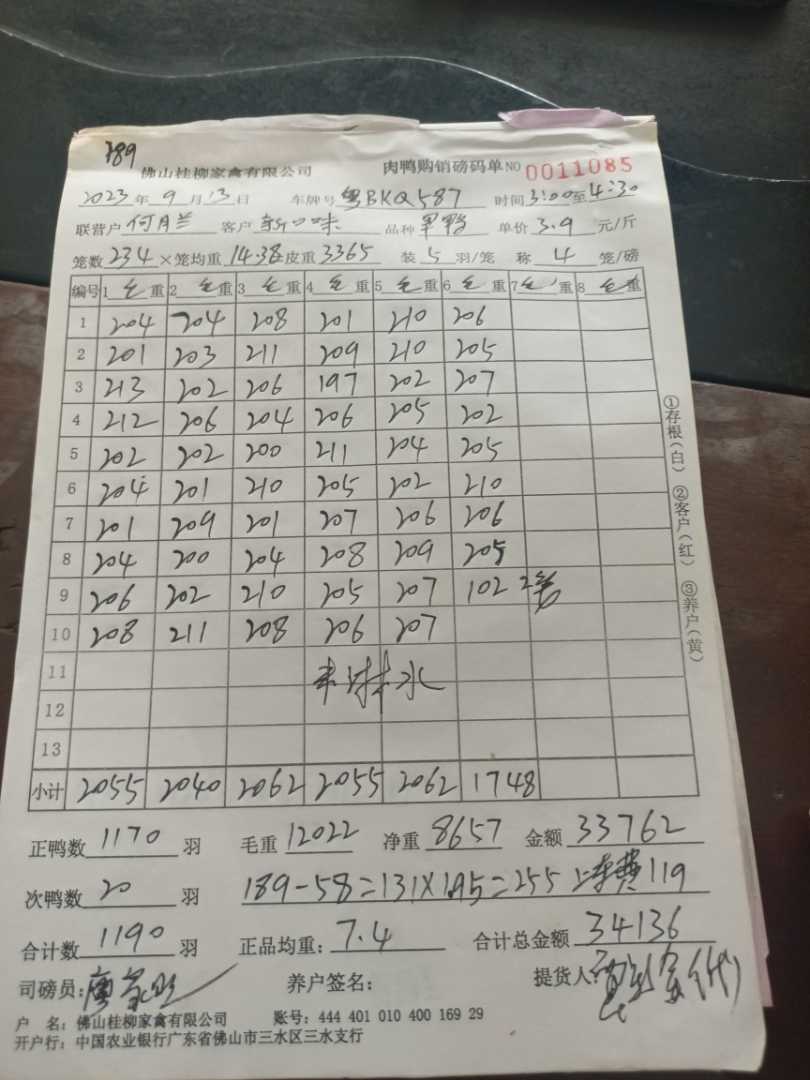 389
佛山桂柳家禽有限公司 肉鸭购销磅码单 NO 0011085
2023年9月13日 车牌号 粤BKQ587 时间 3:00至4:30
联营户 何月兰 客户 新口味 品种 单价 3.9 元/斤
笼数 234 ×笼均重 14.38 皮重 3365 装 5 羽/笼 称 4 笼/磅
编号 1 毛重 2 毛重 3 毛重 4 毛重 5 毛重 6 毛重 7 毛重 8 毛重
1 204 204 208 201 210 206
2 201 203 211 209 210 205
3 213 202 206 197 202 207
4 212 206 204 206 205 202
5 202 202 200 211 204 205
6 204 201 210 205 202 210
7 201 209 201 207 206 206
8 204 200 204 208 209 205
9 206 202 210 205 207 102 2笼
10 208 211 208 206 207
11 未淋水
12
13
小计 2055 2040 2062 2055 2062 1748
正鸭数 1170 羽 毛重 12022 净重 8657 金额 33762
次鸭数 20 羽 189-58=131×1.95=255 上车费119
合计数 1190 羽 正品均重: 7.4 合计总金额 34136
司磅员: 养户签名: 提货人: (代)
户 名: 佛山桂柳家禽有限公司 账号: 444 401 010 400 169 29
开户行: 中国农业银行广东省佛山市三水区三水支行
①存根(白) ②客户(红) ③养户(黄)